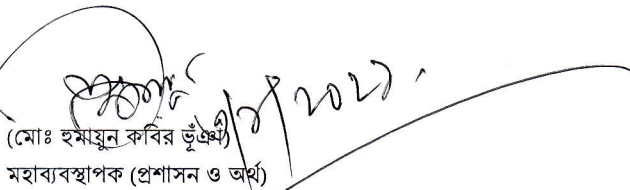 (মোঃ হুমায়ুন কবির ভূঁঞা)
মহাব্যবস্থাপক (প্রশাসন ও অর্থ)